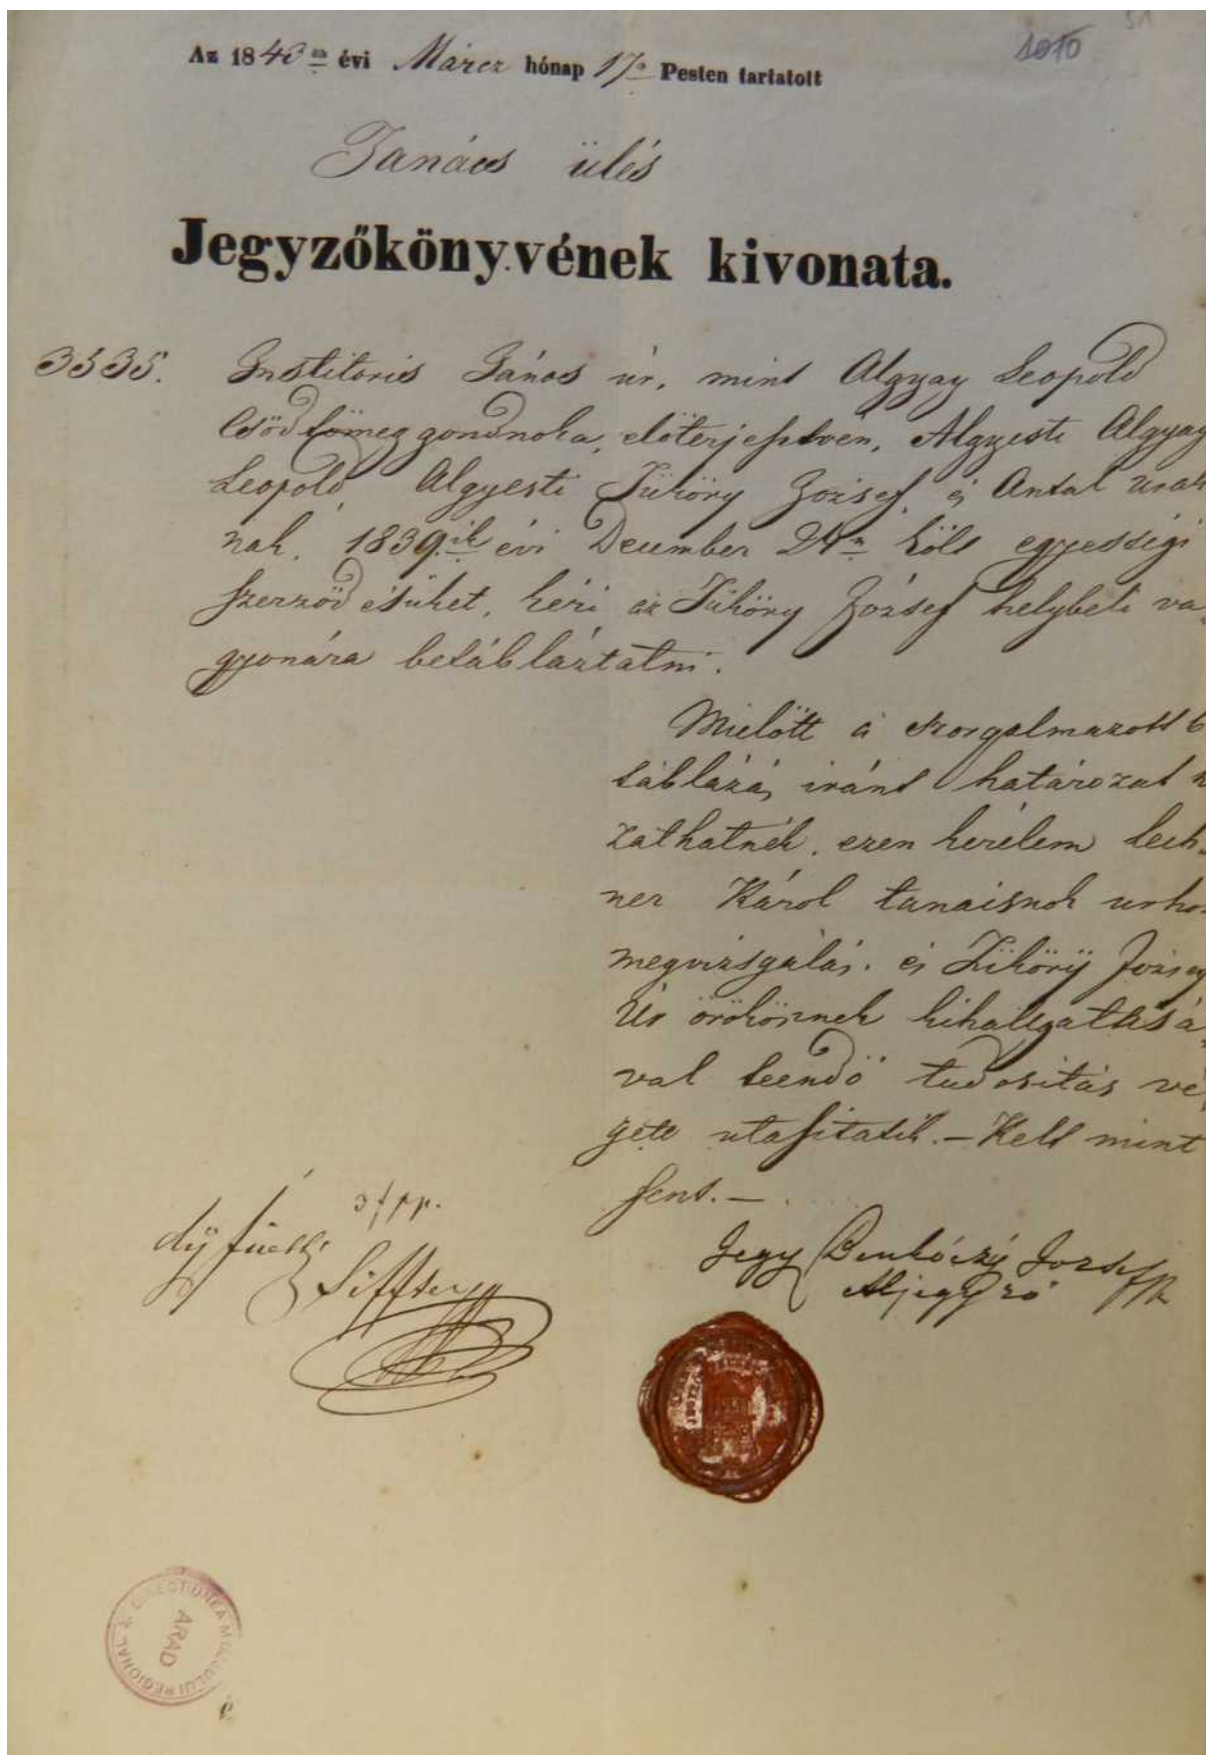 51
1010
Az 1843 ik évi Márcz hónap 17n Pesten tartatott
Tanács ülés
Jegyzőkönyvének kivonata.
3535. Institoris János úr, mint Algyay Leopold
Csőd tömeg gondnoka, előterjesztvén, Algyesti Algyay
Leopold, Algyesti Tüköry József, és Antal urak
nak, 1839ik évi December 24n költ egyességi
szerződésüket, kéri az Tüköry József helybeli va
gyonára betábláztatni.
Mielőtt a szorgalmazott b
táblázás iránt határozat h
zathatnék, ezen kérelem Lech-
ner Károl tanácsnok urho
megvizsgálás, és Tüköry József
Úr örökösinek kihallgatásá
val leendő tudositás vé
gett utasitatik. — Kelt mint
fent. —
Jegy Benkóczÿ Jozsef
Aljegyző
ARAD